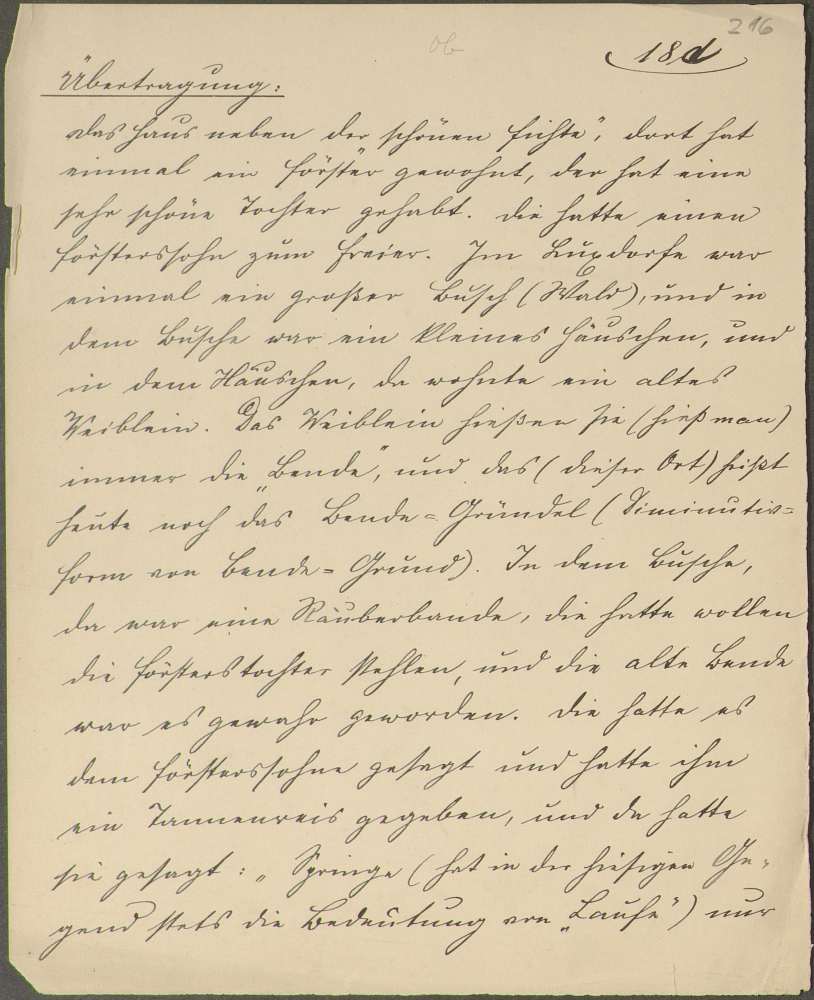 216
ob
18d
Übertragung:
Das Haus neben der schönen Fichte", dort hat
einmal ein Förster gewohnt, der hat eine
sehr schöne Tochter gehabt. Die hatte einen
Försterssohn zum Freier. Im Luxdorfe war
einmal ein großer Busch (Wald), und in
dem Busche war ein kleines Häuschen, und
in dem Häuschen, da wohnte ein altes
Weiblein. Das Weiblein hießen sie (hieß man)
immer die „Bende", und das (dieser Ort) heißt
heute noch das Bende=Gründel (Diminutiv=
form von Bende=Grund). In dem Busche,
da war eine Räuberbande, die hatte wollen
die Försterstochter stehlen, und die alte Bende
war es gewahr geworden. Die hatte es
dem Försterssohne gesagt und hatte ihm
ein Tannenreis gegeben, und da hatte
sie gesagt: „Springe (hat in der hiesigen Ge=
gend stets die Bedeutung von „Laufe") nur